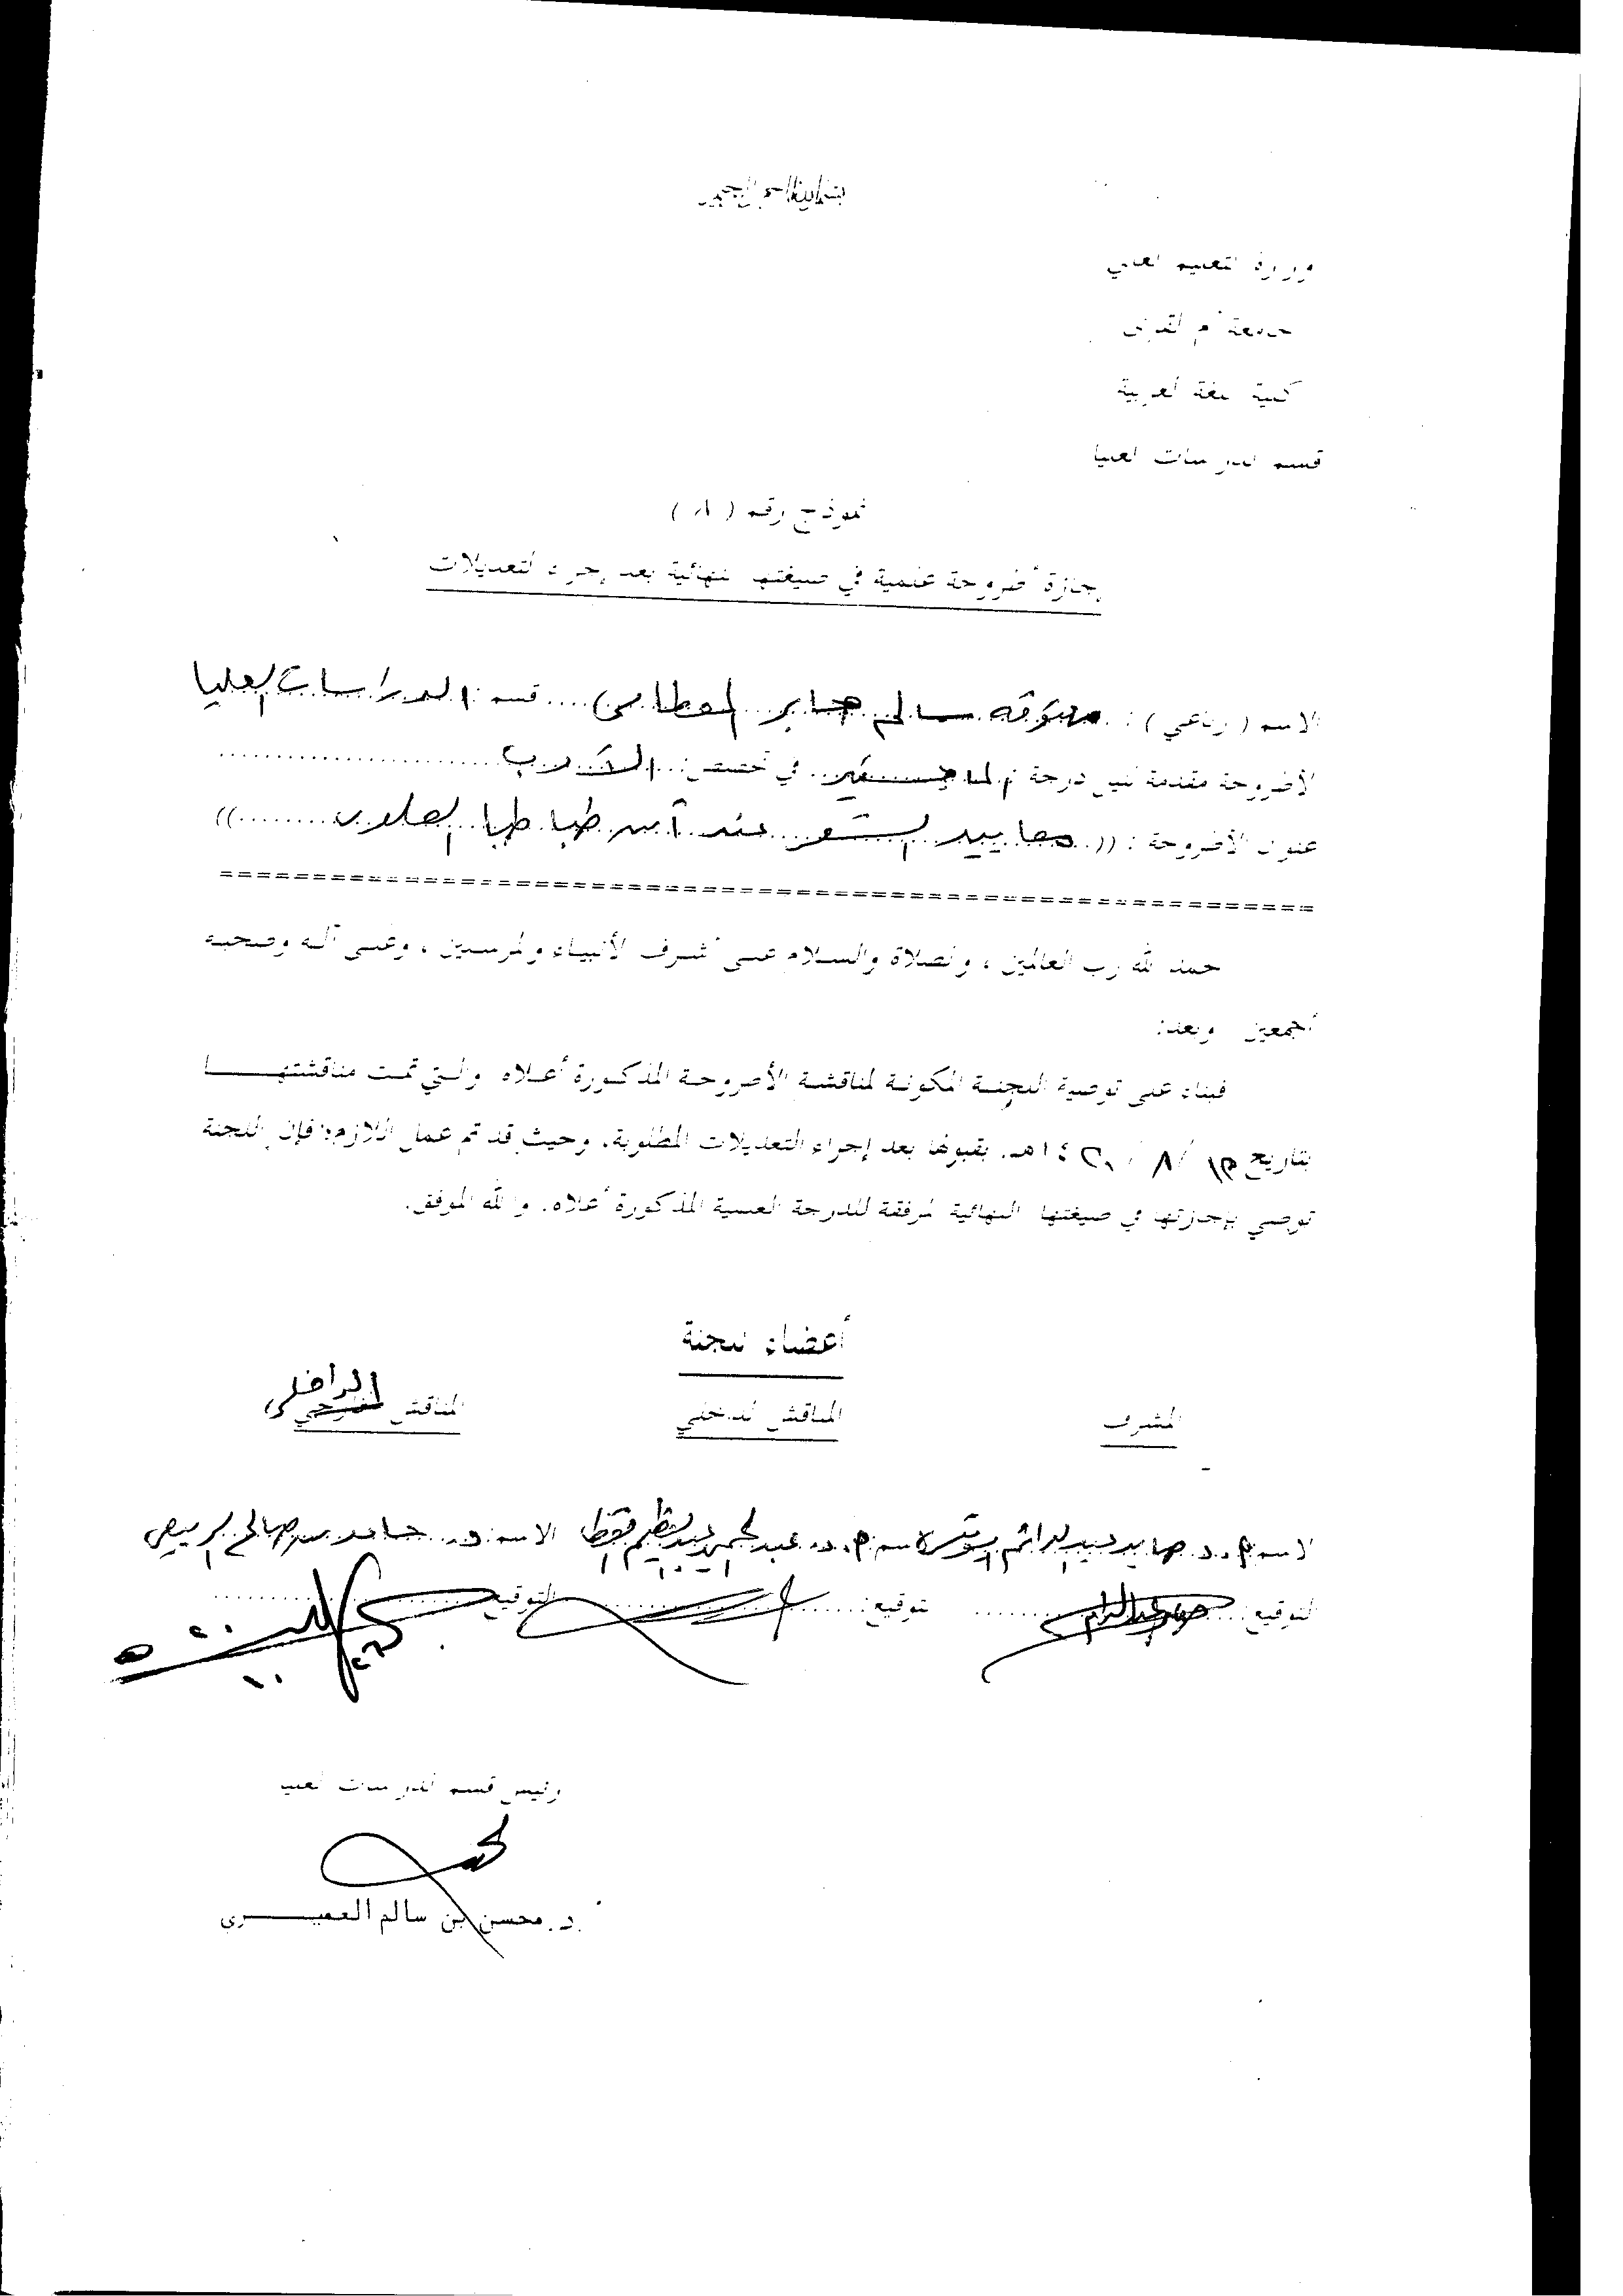 بسم الله الرحمن الرحيم
وزارة التعليم العالي
جامعة أم القرى
كلية اللغة العربية
قسم الدراسات العليا
نموذج رقم ( ٨ )
إجازة أطروحة علمية في صيغتها النهائية بعد إجراء التعديلات
الاسم ( رباعي ) : سالم جابر العطاس قسم : الدراسات العليا
الأطروحة مقدمة لنيل درجة : الماجستير في تخصص : الأدب
عنوان الأطروحة : (( معايير الشعر عند ابن طباطبا العلوي ))
الحمد لله رب العالمين ، والصلاة والسلام على أشرف الأنبياء والمرسلين ، وعلى آله وصحبه
أجمعين وبعد:
فبناء على توصية اللجنة المكونة لمناقشة الأطروحة المذكورة أعلاه والتي تمت مناقشتها
بتاريخ / ٨ / ١٤٢٠هـ. بقبولها بعد إجراء التعديلات المطلوبة. وحيث قد تم عمل اللازم؛ فإن اللجنة
توصي بإجازتها في صيغتها النهائية المرفقة للدرجة العلمية المذكورة أعلاه. والله الموفق.
أعضاء اللجنة
المشرف المناقش الداخلي المناقش الخارجي الداخلي
الاسم أ.د. صابر عبدالدايم يونس الاسم أ.د. عبدالحميد عبدالعظيم القط الاسم د. حامد بن صالح الربيعي
التوقيع : التوقيع : التوقيع
رئيس قسم الدراسات العليا
د. محسن بن سالم العميري